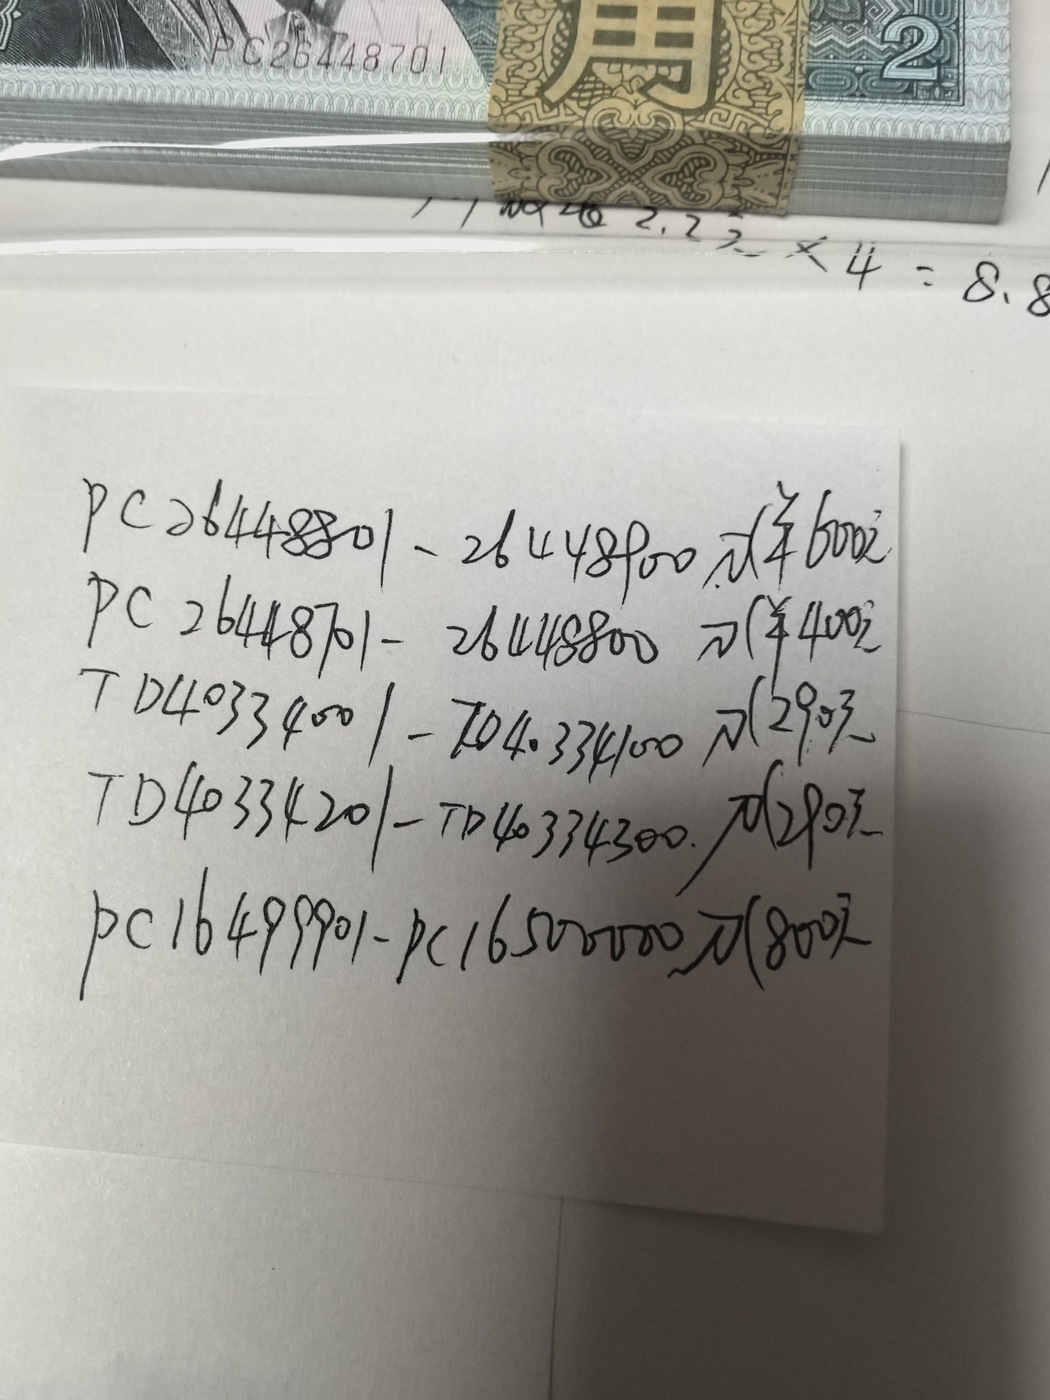 PC26448701
角
2
2.2元×4=8.8
PC26448801-26448900刀(¥600元
PC26448701-26448800刀(¥400元
TD40334001-TD40334100刀(290元
TD40334201-TD40334300.刀(290元
PC16499901-PC16500000刀(800元